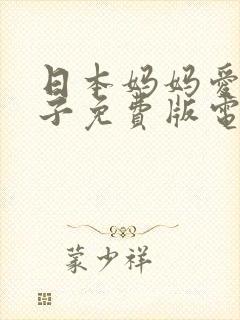 日本妈妈爱
子免费版电
蒙少祥